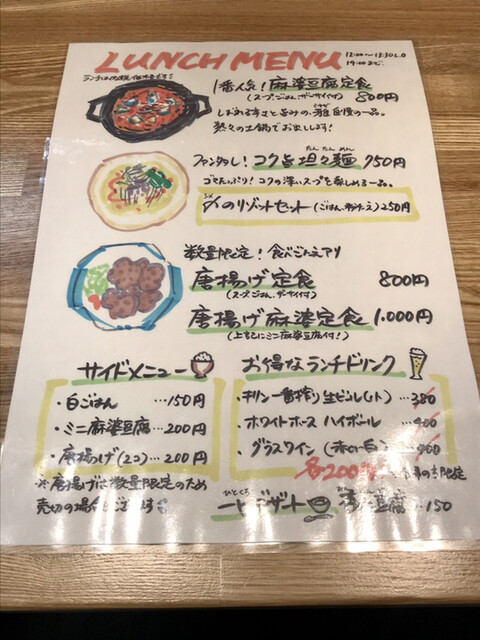 LUNCH MENU
1番人気！麻婆豆腐定食
(スープ、ごはん、ザーサイ付) 800円
しびれる辛さと旨みの、雅自慢の一品。
熱々の土鍋でお出しします！
たん たん めん
ファン多し！コク旨 坦々麺 750円
ゴマたっぷり！コクの深いスープを楽しめる一品。
〆のリゾットセット (ごはん、粉チーズ) 250円
数量限定！食べごたえアリ
唐揚げ定食 800円
(スープ、ごはん、ザーサイ付)
唐揚げ麻婆定食 1.000円
(上記にミニ麻婆豆腐付！)
サイドメニュー
・白ごはん …150円
・ミニ麻婆豆腐…200円
・唐揚げ(2コ)…200円
※唐揚げは数量限定のため
売切の場合もございます
お得なランチドリンク
・キリン一番搾り 生ビール(小)…380
・ホワイトホース ハイボール …400
・グラスワイン (赤or白) …400
各200円
ひとくち
一口デザート 豆腐 …150